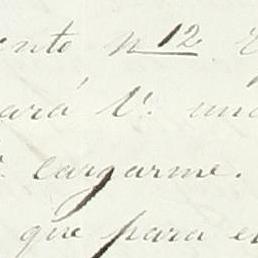 ento nº 12
ará V. una
cargarme.
que para el